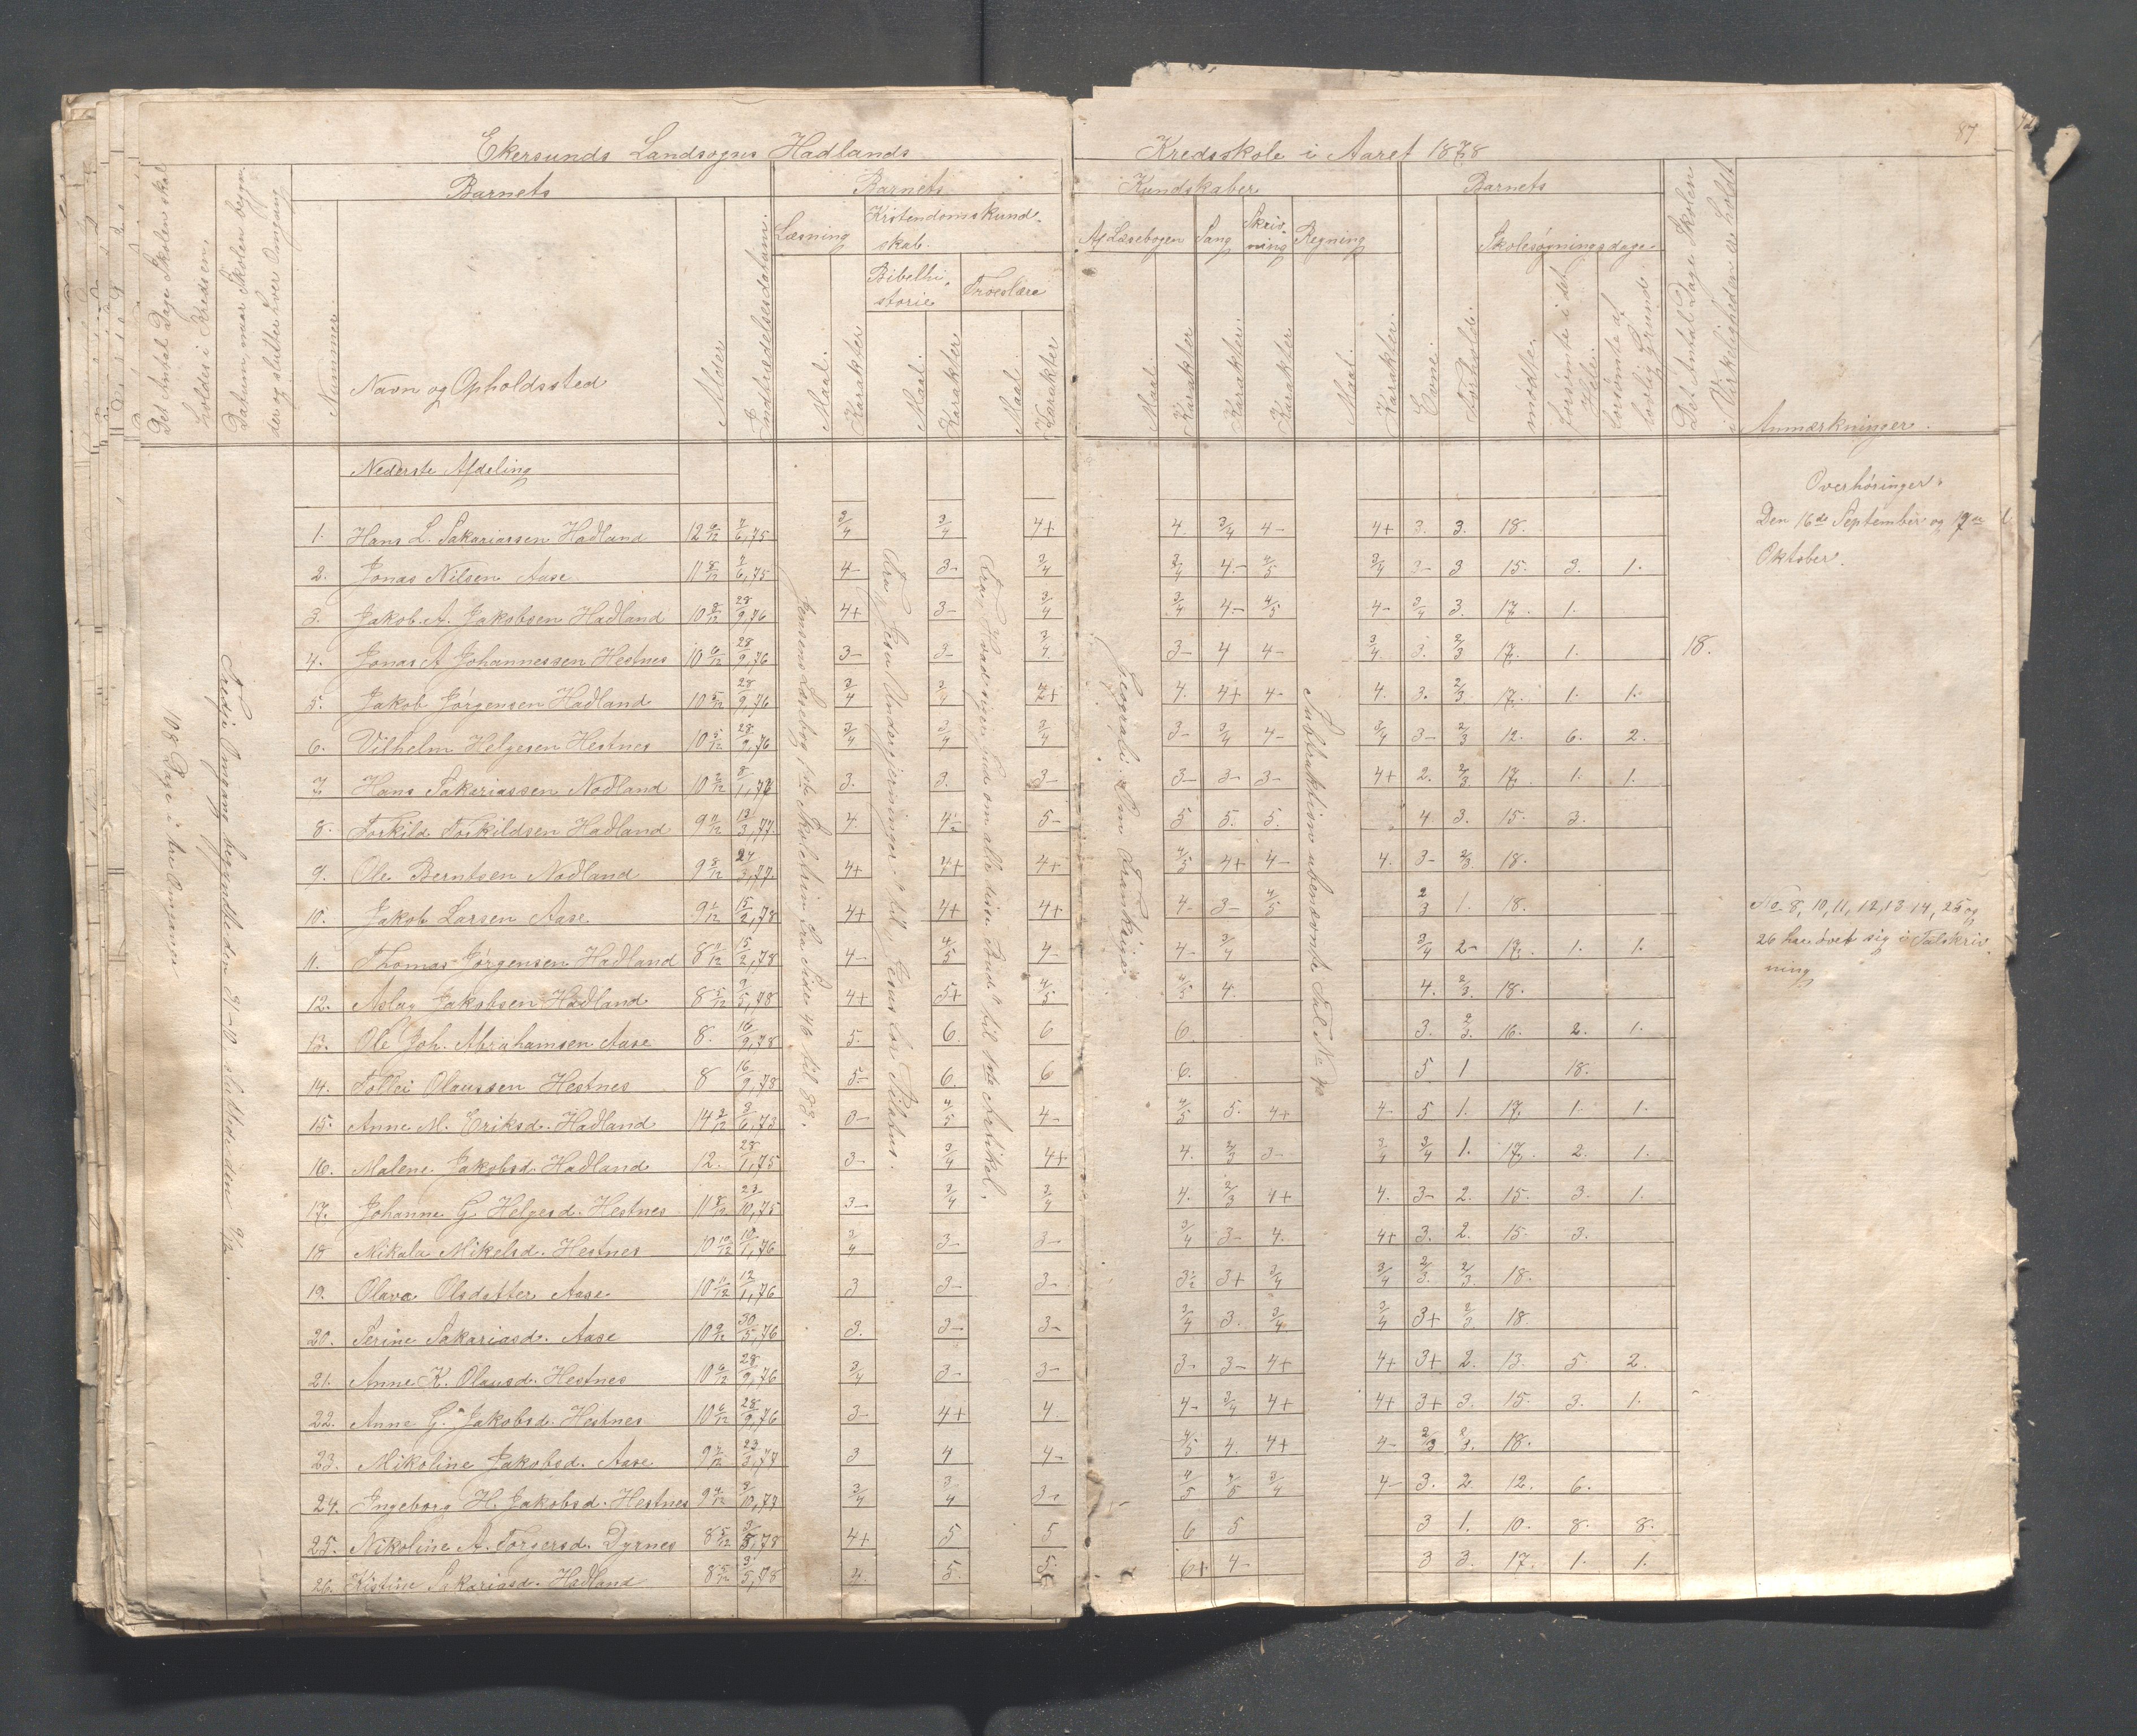 87
Ekersunds Landsogns Hadlands Kredsskole i Aaret 1878
Det Antal Dage Skolen skal holdes i Kredsen.
Datum, naar Skolen begynder og slutter hver Omgang
Barnets
Nummer
Navn og Opholdssted
Alder
Indtrædelsesdatum.
Barnets Kundskaber
Læsning
Maal.
Karakter
Kristendomskundskab.
Bibelhistorie
Maal.
Karakter
Troeslære
Maal.
Karakter
Af Læsebogen
Maal.
Karakter
Sang
Karakter.
Skrivning
Karakter
Regning
Maal.
Karakter.
Barnets
Evne.
Forhold.
Skolesøgningsdage.
mødte.
forsømte i det Hele.
forsømte af lovlig Grund.
Det Antal Dage Skolen i Virkeligheden er holdt
Anmærkninger.
108 Dage i tre Omgange
Tredje Omgang begyndte den
Jensens Læsebog, 1ste Skoletrin fra Side 46 til 83.
Fra Jesu Undergjerninger til Jesus for Pilatus.
Fra Hvad siger Gud om alle disse Bud til 1ste Artikel.
Geografi: Om Frankrige
Subtraktion ubenævnte Tal No
18.
Nederste Afdeling
1. Hans L. Sakariassen Hadland 12 9/12 7/6,75 3/4 3/4 4+ 4. 3/4 4- 4+ 3. 3. 18.
2. Jonas Nilsen Aase 11 8/12 7/6,75 4- 3- 3/4 3/4 4.- 4/5 3/4 3- 3 15. 3. 1.
3. Jakob A. Jakobsen Hadland 10 8/12 28/9,76 4+ 3- 3/4 3/4 4.- 4/5 4- 3/4 3. 17. 1.
4. Jonas A Johannessen Hestnes 10 6/12 28/9,76 3- 3- 3/4 3- 4 4- 3/4 3. 2/3 17. 1.
5. Jakob Jørgensen Hadland 10 5/12 28/9,76 3/4 3/4 4+ 4. 4+ 4- 4. 3. 2/3 17. 1. 1.
6. Vilhelm Helgesen Hestnes 10 5/12 28/9,76 3/4 3/4 3/4 3- 3/4 4- 3/4 3- 2/3 12. 6. 2.
7. Hans Sakariassen Nodland 10 2/12 8/1,77 3. 3. 3- 3- 3- 3- 4+ 2. 2/3 17. 1. 1.
8. Torkild Torkildsen Hadland 9 11/12 13/3,77 4. 4½ 5- 5 5. 5. 4 3. 15. 3.
9. Ole Berntsen Nodland 9 8/12 24/3,77 4+ 4+ 4+ 4/5 4+ 4- 4. 3- 2/3 18.
10. Jakob Larsen Aase 9 1/12 15/2,78 4+ 4+ 4+ 4- 3- 4/5 2/3 1. 18.
11. Thomas Jørgensen Hadland 8 11/12 15/2,78 4- 4/5 4- 4- 3/4 3/4 2- 17. 1. 1.
12. Aslag Jakobsen Hadland 8 5/12 3/5,78 4+ 5+ 4/5 4/5 4 4. 2/3. 18.
13. Ole Joh. Abrahamsen Aase 8. 16/9,78 5. 6. 6 6. 3. 2/3. 16. 2. 1.
14. Tollei Olaussen Hestnes 8 16/9,78 5- 6. 6 6. 5 1 18.
15. Anne M. Eriksd. Hadland 14 2/12 3/6,73 4/5 4- 4/5 5. 4+ 4- 5 1. 17. 1. 1.
16. Malene Jakobsd. Hadland 12. 28/1,75 3- 3/4 4+ 4. 2/3 3- 3/4 3/4 1. 17. 2. 1.
17. Johanne G. Helgesd. Hestnes 11 8/12 23/10,75 3- 3/4 3/4 4. 2/3 4+ 4. 3- 2. 15. 3. 1.
18 Nikala Mikelsd. Hestnes 10 10/12 10/1,76 3/4 3- 3- 3/4 3- 4. 4+ 3. 2. 15. 3.
19. Olava Olsdatter Aase 10 11/12 12/1,76 3 3- 3- 3½ 3+ 3/4 3/4 2/3. 2/3. 18.
20. Serine Sakariasd. Aase 10 9/12 30/5,76 3. 3- 3- 3/4 3. 3/4 3/4 3+ 2/3. 18.
21. Anne K. Olausd. Hestnes 10 6/12 28/9,76 3/4 3- 3- 3- 3- 4+ 4+ 3+ 2. 13. 5. 2.
22. Anne G. Jakobsd. Hestnes 10 6/12 28/9,76 3- 4+ 4 4- 3/4 4+ 4+ 3+ 3. 15. 3. 1.
23. Mikoline Jakobsd. Aase 9 7/12 23/3,77 3 4 4- 4/5 4. 4+ 4- 2/3 2/3. 18.
24. Ingeborg H. Jakobsd. Hestnes 9 4/12 3/10,77 3/4 3/4 3- 4/5 4/5 3/4 4- 3. 2. 12. 6.
25. Nikoline A. Torgersd. Dyrnes 8 5/12 3/5,78 4+ 5 5 6 5 3 1. 10. 8. 8.
26. Kistine Sakariasd. Hadland 8 5/12 3/5,78 4. 5. 5. 6+ 4- 3 3. 17. 1. 1.
Overhøringer
Den 16de September og
Oktober.
No 8, 10, 11, 12, 13 14, 25 og
26 har øvet sig i Talskriv-
ning